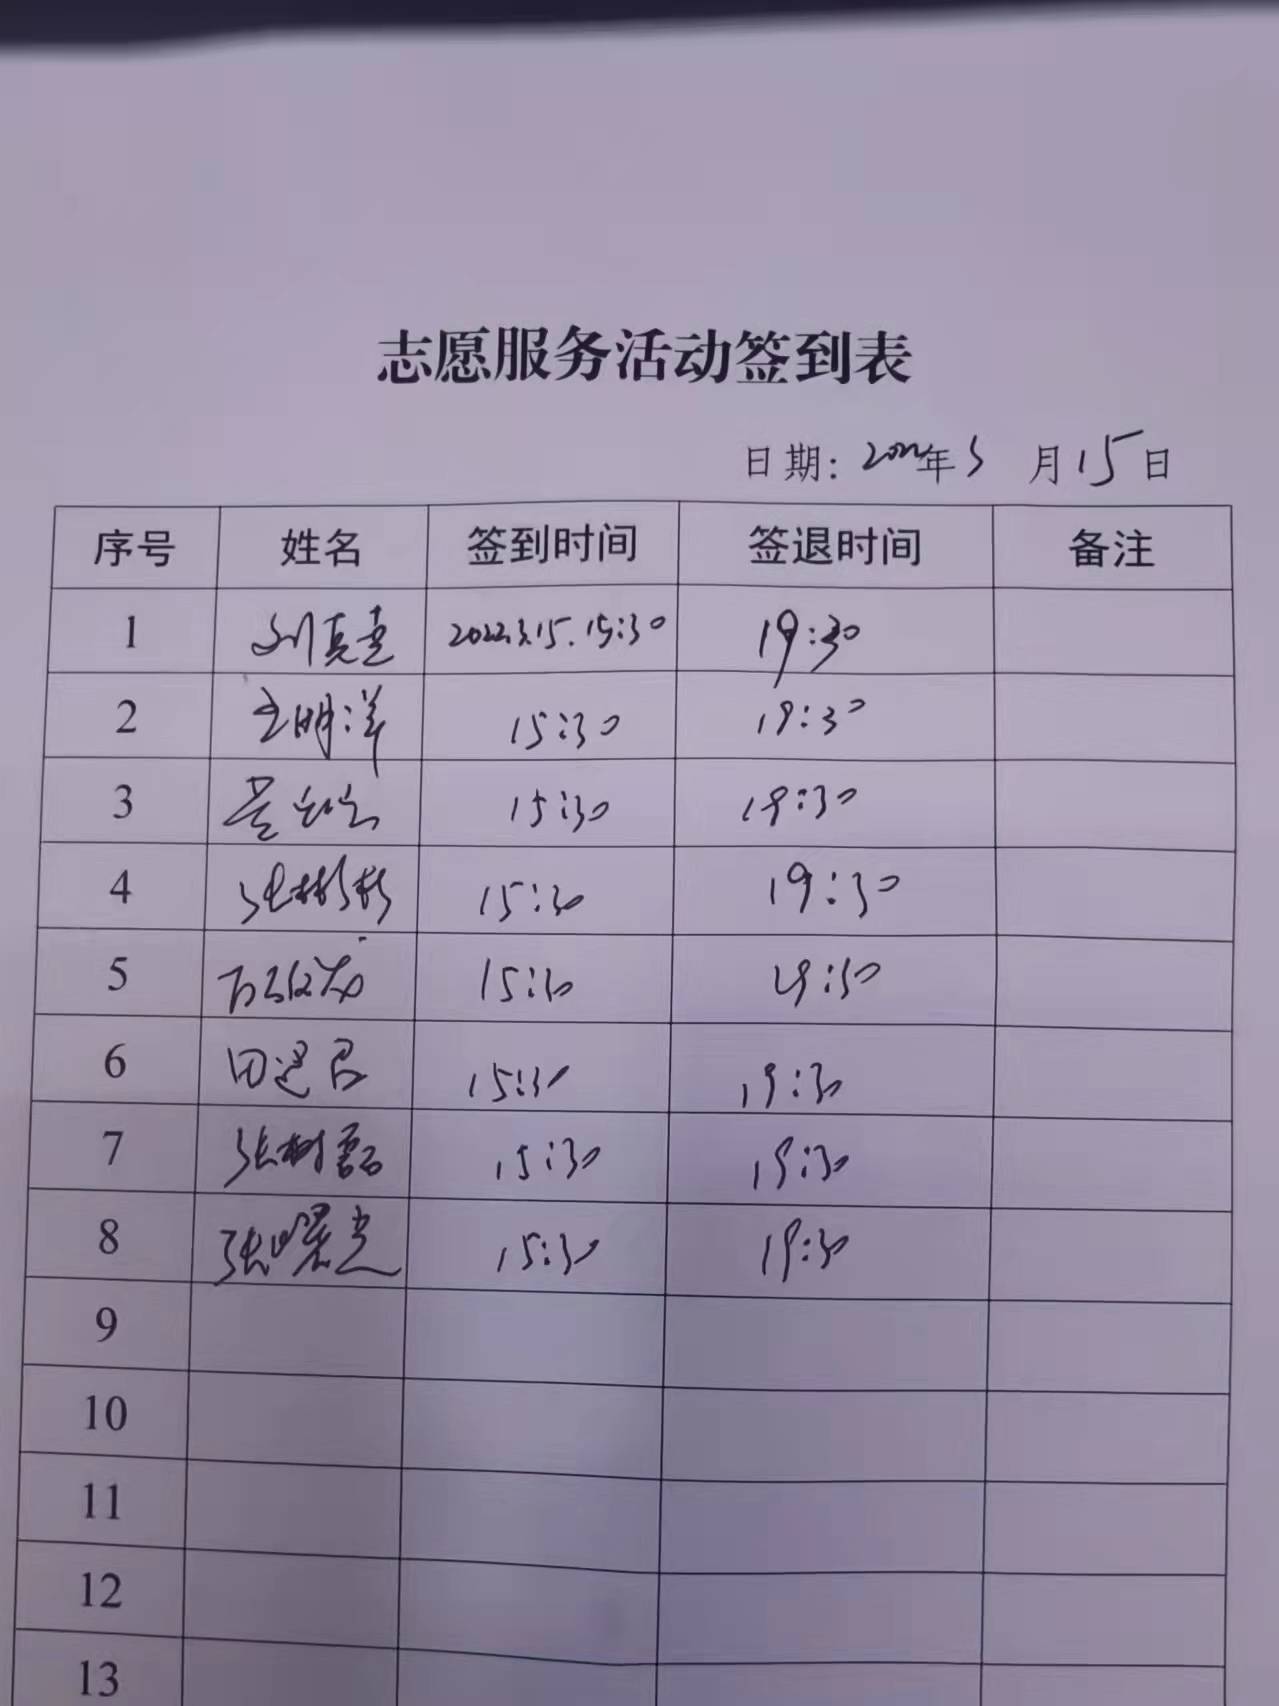 志愿服务活动签到表
日期: 2022年3月15日
序号 姓名 签到时间 签退时间 备注
1 刘真 2022.3.15. 15:30 19:30
2 王明洋 15:30 19:30
3 15:30 19:30
4 张彬彬 15:30 19:30
5 15:30 19:30
6 田 君 15:30 19:30
7 张树磊 15:30 19:30
8 张曙光 15:30 19:30
9
10
11
12
13